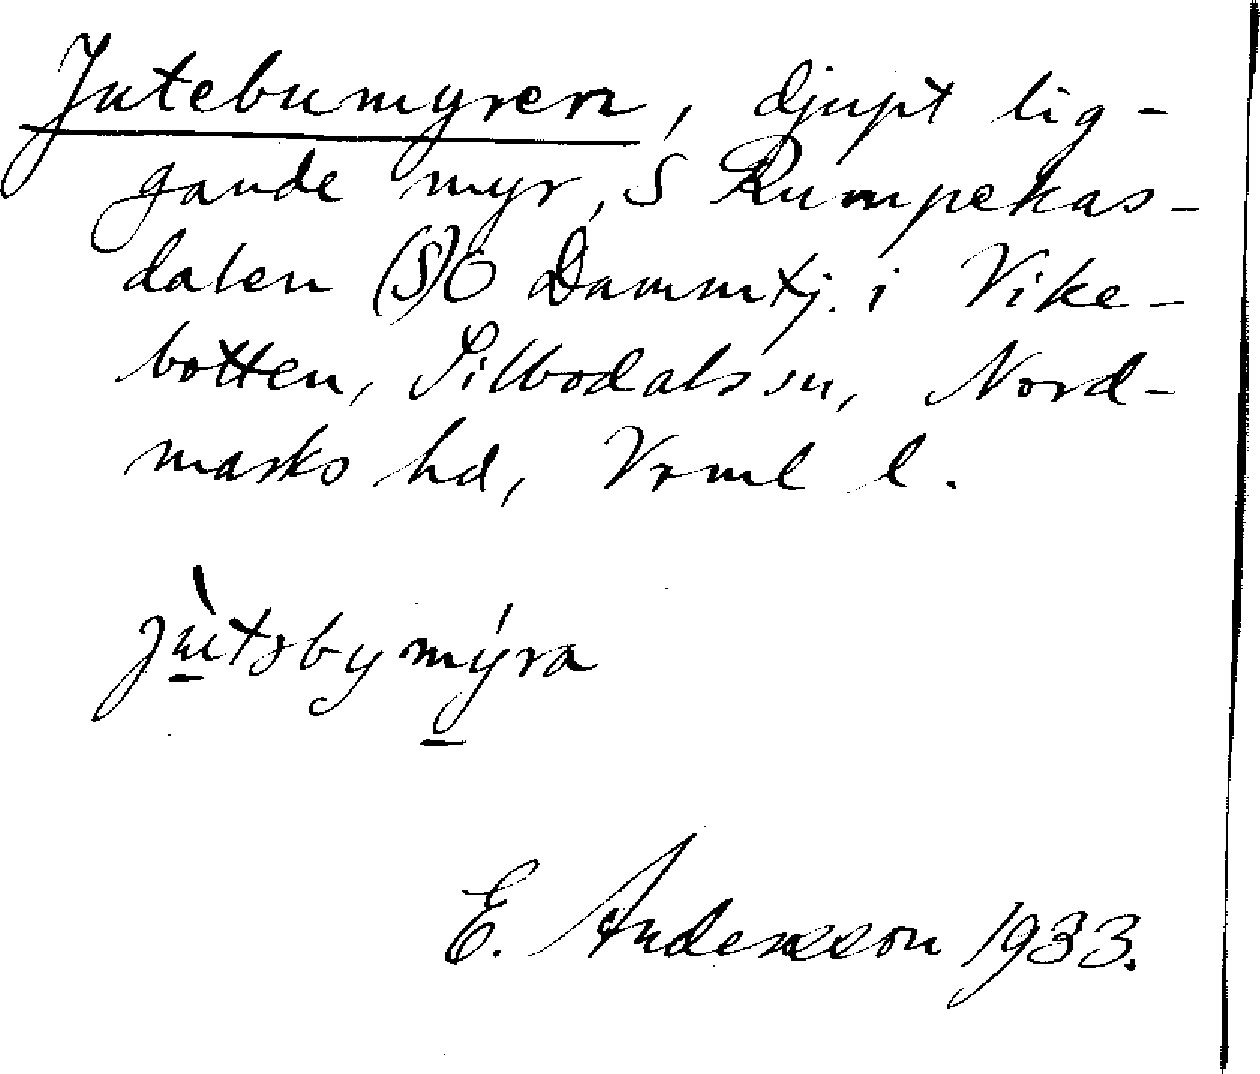 Jutebumyren, djupt lig-
gande myr, S Rumpekas-
dalen (S)O Dammtj. i Vike-
botten, Silbodals sn, Nord-
marks hd, Vrml l.
jùtəbymýra
E. Andersson 1933.